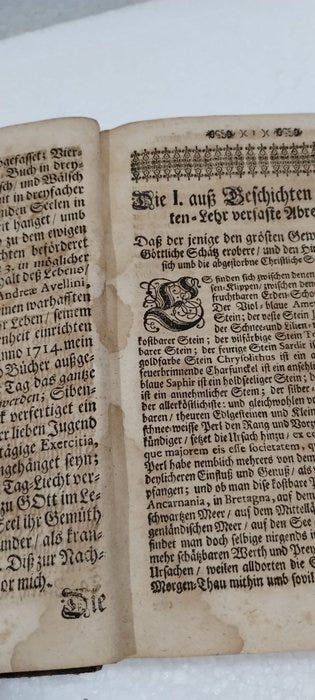 gefasset; Vier-
Buch in drey-
sch, und Wälsch
nit in dreyfacher
nden Seelen in
t hanget / umb
zu dem ewigen
chten befördert
3. in möglicher
halt deß Lebens
Andreæ Avellini,
inen warhafften
r Leben / seinem
enheit einrichten
nno 1714. mein
Bücher außge-
Tag das gantze
werden; Siben-
k verfertiget ein
er lieben Jugend
tägige Exercitia,
ngehänget seyn;
Tag-Liecht ver-
zu GOtt im Le-
Seel ihr Gemüth
under / als kran-
Diß zur Nach-
or mich.
Die
)( 1 )(
Die I. auß Geschichten
ten-Lehr verfaßte Abre
Daß der jenige den grösten Gew
Göttliche Schätz erobere / und den Hi
sich umb die abgestorbne Christliche S
ES finden sich zwischen denen
sen-Klippen / zwischen dem
fruchtbaren Erden-Scho
Der Viel-blaue Ame
Stein; der veste Stein J
der Schnee- und Lilien-
kostbarer Stein; der vilfärbige Stein T
barer Stein; der färige Stein Sardis i
goldfarbe Stein Chrysolithus ist ein a
feuerbrinnende Charfunckel ist ein anseh
blaue Saphir ist ein holdseeliger Stein; d
ist ein annemlicher Stein; der silber-
der allerköstlichiste; und gleichwohlen vo
baren / theuren Edlgesteinen und Klein
schnee-weisse Perl den Rang und Vorz
kündiger / setzet die Ursach hinzu / ex c
que majorem eis esse societatem, qu
Perl habe nemblich mehrers von dem
deylicheren Einfluß und Genuß / als v
pfangen; und ob man dise kostbare P
Ancarnania, in Bretagna, auf dem
schwartzen Meer / auf dem Mittellä
genländischen Meer / auf den See
findet man doch selbige nirgends in
mehr schätzbaren Werth und Prey
Ursachen / weilen alldorten die S
Morgen-Thau mithin umb sovil